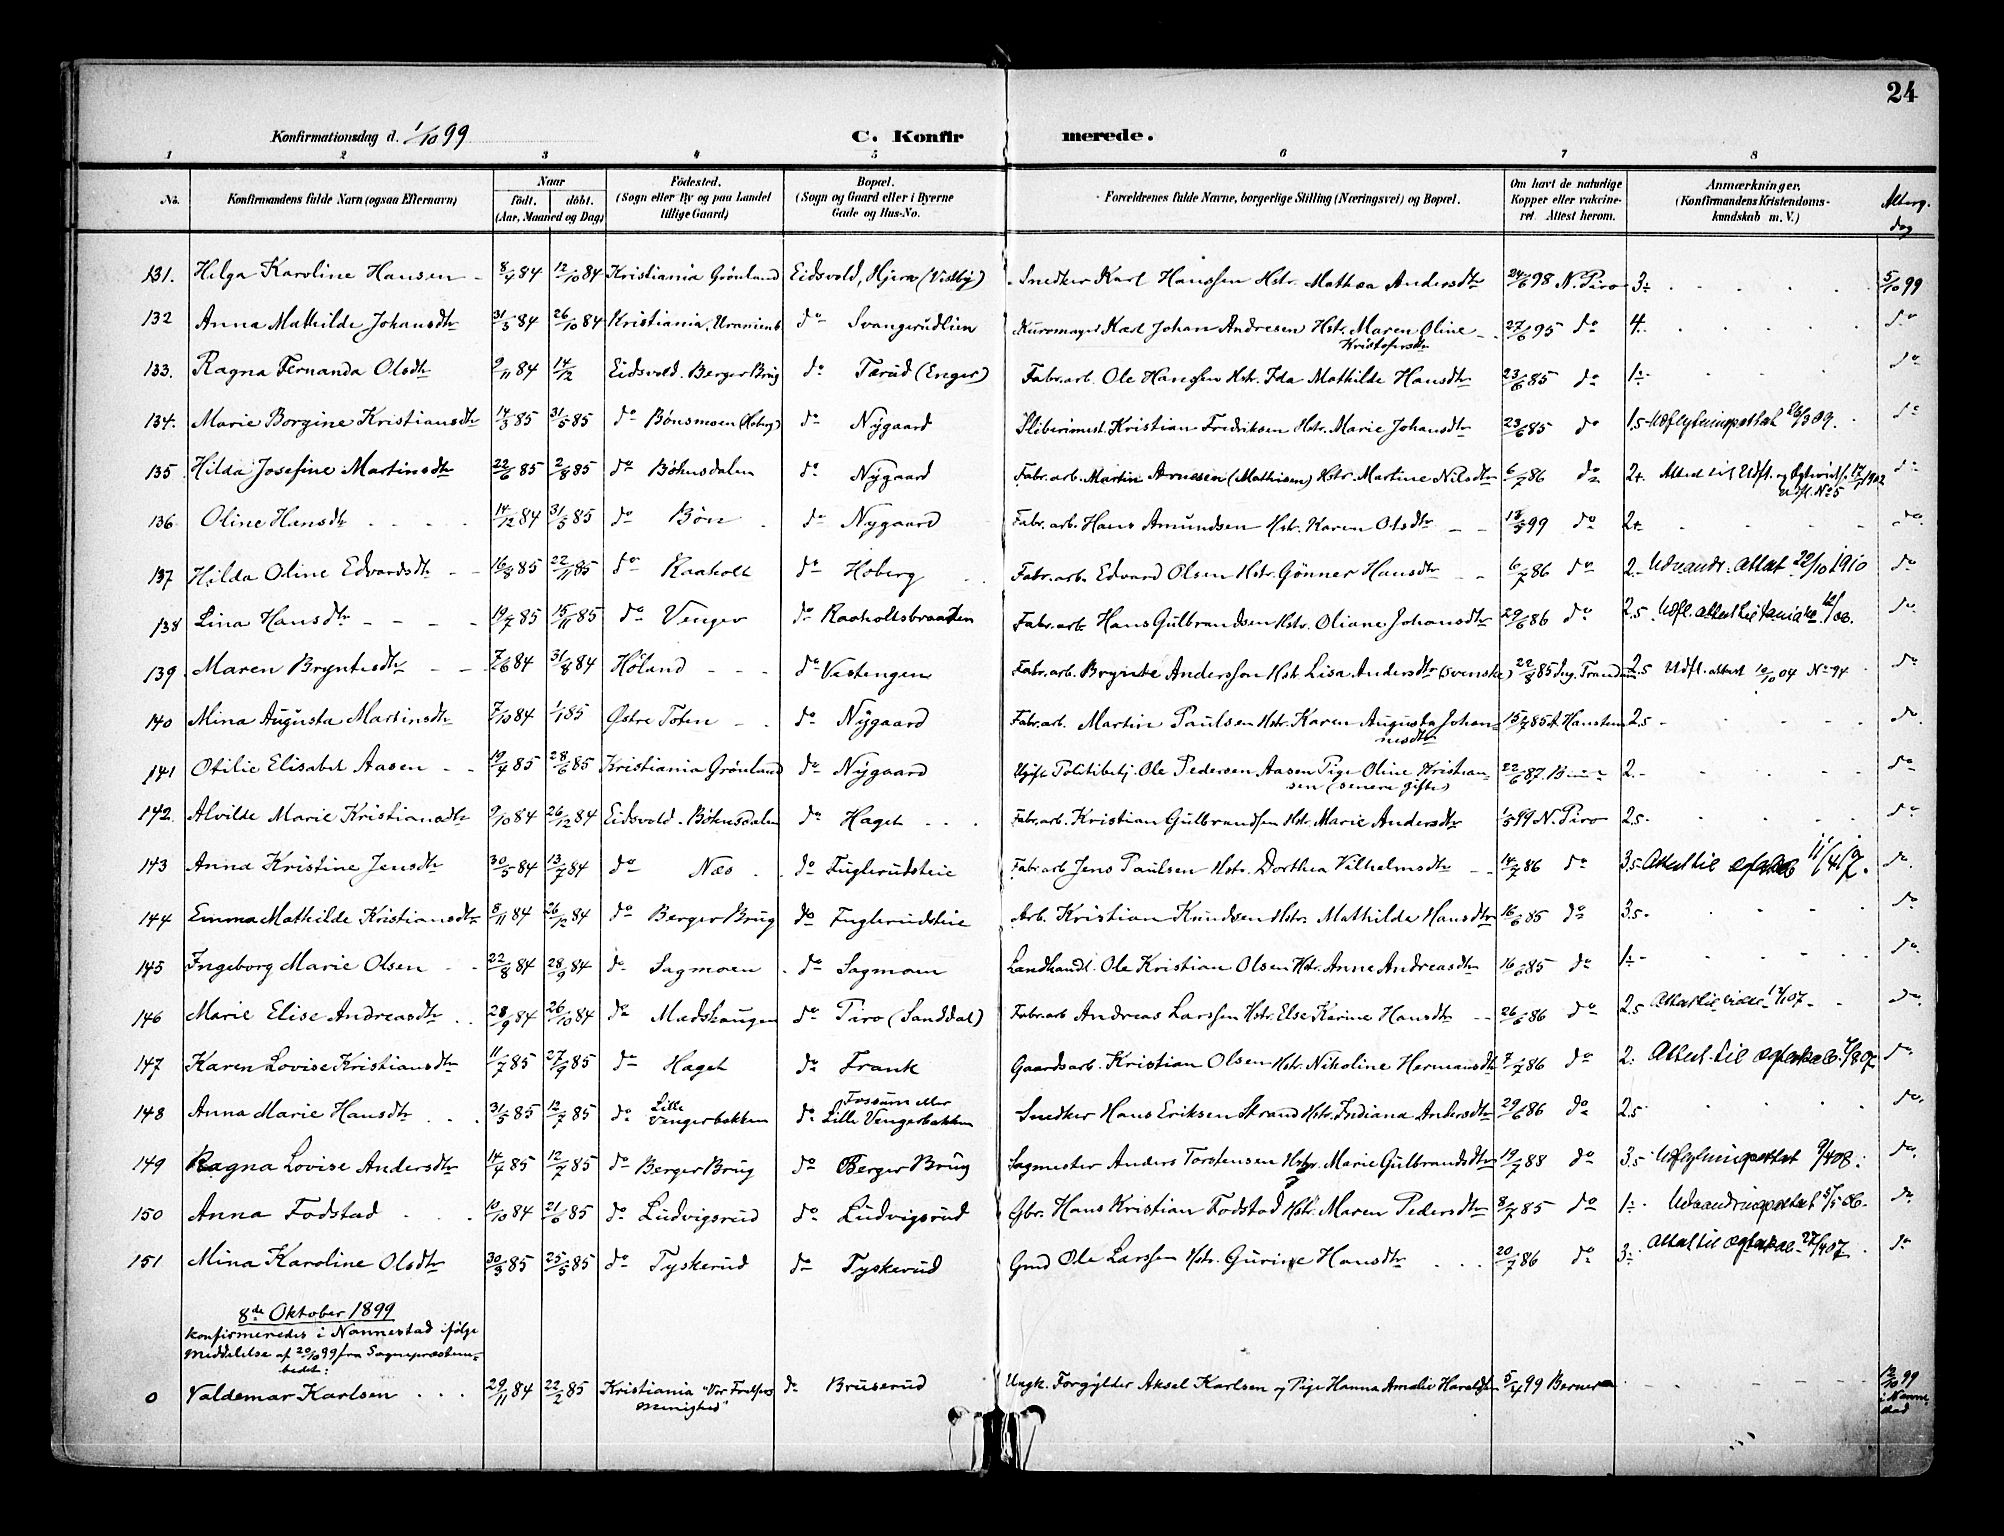 24
Konfirmationsdag d. 1/10 99 C. Konfirmerede.
1 2 3 4 5 6 7 8
No. Konfirmandens fulde Navn (ogsaa Efternavn) Naar født. døbt. (Aar, Maaned og Dag) Fødested. (Sogn eller By og paa Landet tillige Gaard) Bopæl. (Sogn og Gaard eller i Byerne Gade og Hus-No. Forældrenes fulde Navne, borgerlige Stilling (Næringsvei) og Bopæl. Om havt de naturlige Kopper eller vakcineret. Attest herom. Anmærkninger. (Konfirmandens Kristendomskundskab m. V.) Alterg. dag
131. Helga Karoline Hansen 8/4 84 12/10 84 Kristiania Grønland Eidsvold, Hjera (Vidby) Snedker Karl Hanssen Hstr. Mathea Andersdtr 24/6 98 N. Piro 3 5/10 99
132 Anna Mathilde Johansdtr 31/3 84 26/10 84 Kristiania, Uranienb do Svangerudlien Kurvmager Karl Johan Andresen Hstr. Maren Oline Kristofersdtr 27/6 95 do 4. do
133. Ragna Fernanda Olsdtr 9/11 84 14/12 Eidsvold. Berger Brug do Tærud (Enger) Fabr.arb. Ole Hanssen Hstr. Ida Mathilde Hansdtr 23/6 85 do 1 do
134. Marie Borgine Kristiansdtr 14/3 85 31/5 85 do Bønsmoen (Hoberg) do Nygaard Sliberimest. Kristian Fredriksen Hstr. Marie Johansdtr 23/6 85 do 1.5 Udflytningsattest 26/3 09. do
135 Hilda Josefine Martinsdtr 22/6 85 2/8 85 do Bøhnsdalen do Nygaard Fabr.arb. Martin Arnesen (Mathisen) Hstr. Martine Nilsdtr 6/7 86 do 2 Attest til Udfl. og 17/1902 Udfl. No 5 do
136. Oline Hansdtr 14/12 84 31/5 85 do Bøn do Nygaard Fabr.arb. Hans Amundsen Hstr. Karen Olsdtr 18/5 99 do 2 do
137 Hilda Oline Edvardsdtr 16/8 85 22/11 85 do Raaholt do Hoberg Fabr.arb. Edvard Olsen Hstr. Gønner Hansdtr 6/7 86 do 2. Udvandr. Attest 22/10 1910 do
138 Lina Hansdtr 19/7 85 15/11 85 do Venger do Raaholtsbraaten Fabr.arb. Hans Gulbrandsen Hstr. Oliane Johansdtr 29/6 86 do 2.5 Udfl. attest do
139 Maren Bryntesdtr 7/6 84 31/8 84 Høland do Vestengen Fabr.arb. Brynte Andersson Hstr. Lisa Andersdtr (svenske) 22/8 85 Ing. Trandum 2.5 Udfl. attest 10/10 04 No 94 do
140 Mina Augusta Martinsdtr 7/10 84 1/1 85 Østre Toten do Nygaard Fabr.arb. Martin Paulsen Hstr. Karen Augusta Johannesdtr 15/7 85 A Hansteen 2.5 do
141 Otilie Elisabet Aasen 19/4 85 28/6 85 Kristiania Grønland do Nygaard Ugift Politibetj. Ole Pedersen Aasen Pige Oline Kristiansen (senere gifte) 22/6 87. 2. do
142. Alvilde Marie Kristiansdtr 9/10 84 26/12 84 Eidsvold. Bøhnsdalen do Haget Fabr.arb. Kristian Gulbrandsen Hstr. Marie Andersdtr 1/5 99 N. Piro 2.5 do
143 Anna Kristine Jensdtr 30/5 84 13/7 84 do Næs do Fuglerudsteie Fabr.arb Jens Paulsen Hstr. Dorthea Vilhelmsdtr 14/7 86 do 3.5 Attest til 11/4 07. do
144 Emma Mathilde Kristiansdtr 8/11 84 26/12 84 do Berger Brug do Fuglerudsteie Arb. Kristian Knudsen Hstr. Mathilde Hansdtr 16/6 85 do 3.5 do
145 Ingeborg Marie Olsen 22/8 84 28/9 84 do Sagmoen do Sagmoen Landhandl. Ole Kristian Olsen Hstr. Anne Andreasdtr 16/6 85 do 1 do
146 Marie Elise Andreasdtr 28/9 84 26/10 84 do Mædshaugen do Piro (Sanddal) Fabr.arb Andreas Larssen Hstr. Else Karine Hansdtr 26/6 86 do 2.5 Attest til do
147 Karen Lovise Kristiansdtr 11/7 85 27/9 85 do Haget do Frank Gaardsarb. Kristian Olsen Hstr. Nikoline Hermansdtr 7/7 86 do 2. Attest til do
148 Anna Marie Hansdtr 31/5 85 12/7 85 do Lille Vengerbakken do Fossum eller Lille Vengerbakken Snedker Hans Eriksen Strand Hstr. Indiana Andersdtr 29/6 86 do 2.5 do
149 Ragna Lovise Andersdtr 14/7 85 12/7 85 do Berger Brug do Berger Brug Sagmester Anders Torstensen Hstr. Marie Gulbrandsdtr 19/7 88 do 3.5 Udflytningsattest 9/4 08. do
150 Anna Fodstad 10/10 84 21/6 85 do Ludvigsrud do Ludvigsrud Gbr. Hans Kristian Fodstad Hstr. Maren Pedersdtr 8/7 85 do 1 Udvandringsattest 5/5 06. do
151 Mina Karoline Olsdtr 30/3 85 25/5 85 do Tyskerud do Tyskerud Gmd Ole Larssen Hstr. Gurine Hansdtr 20/7 86 do 3 Attest til 27/4 07 do
8de Oktober 1899
konfirmeredes i Nannestad ifølge
meddelelse af 20/10 99 fra Sognepræstembedet:
0 Valdemar Karlsen 29/11 84 22/2 85 Kristiania "Vor Frelsers menighed" do Bruserud Ungk. Forgylder Aksel Karlsen og Pige Hanna Amalie Haraldsen 5/4 99 Berner 12/10 99 i Nannestad